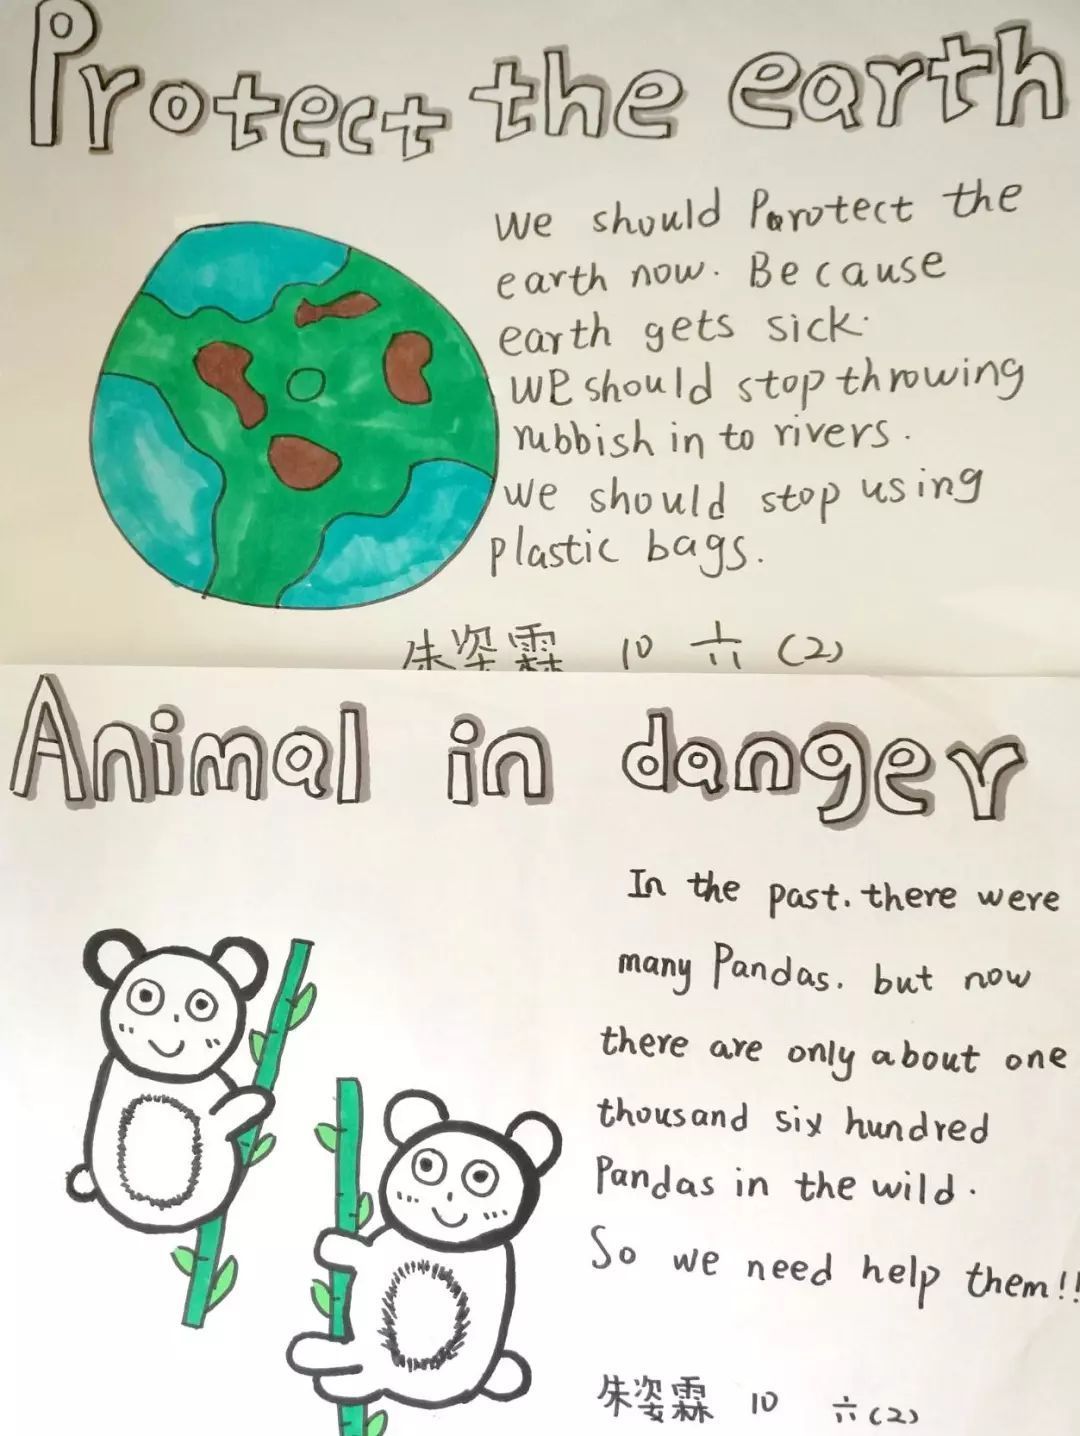 Protect the earth
We should Parotect the
earth now. Because
earth gets sick.
We should stop throwing
rubbish in to rivers.
We should stop using
plastic bags.
朱姿霖 10 六(2)
Animal in danger
In the past. there were
many Pandas. but now
there are only about one
thousand six hundred
Pandas in the wild.
So we need help them!!
朱姿霖 10 六(2)